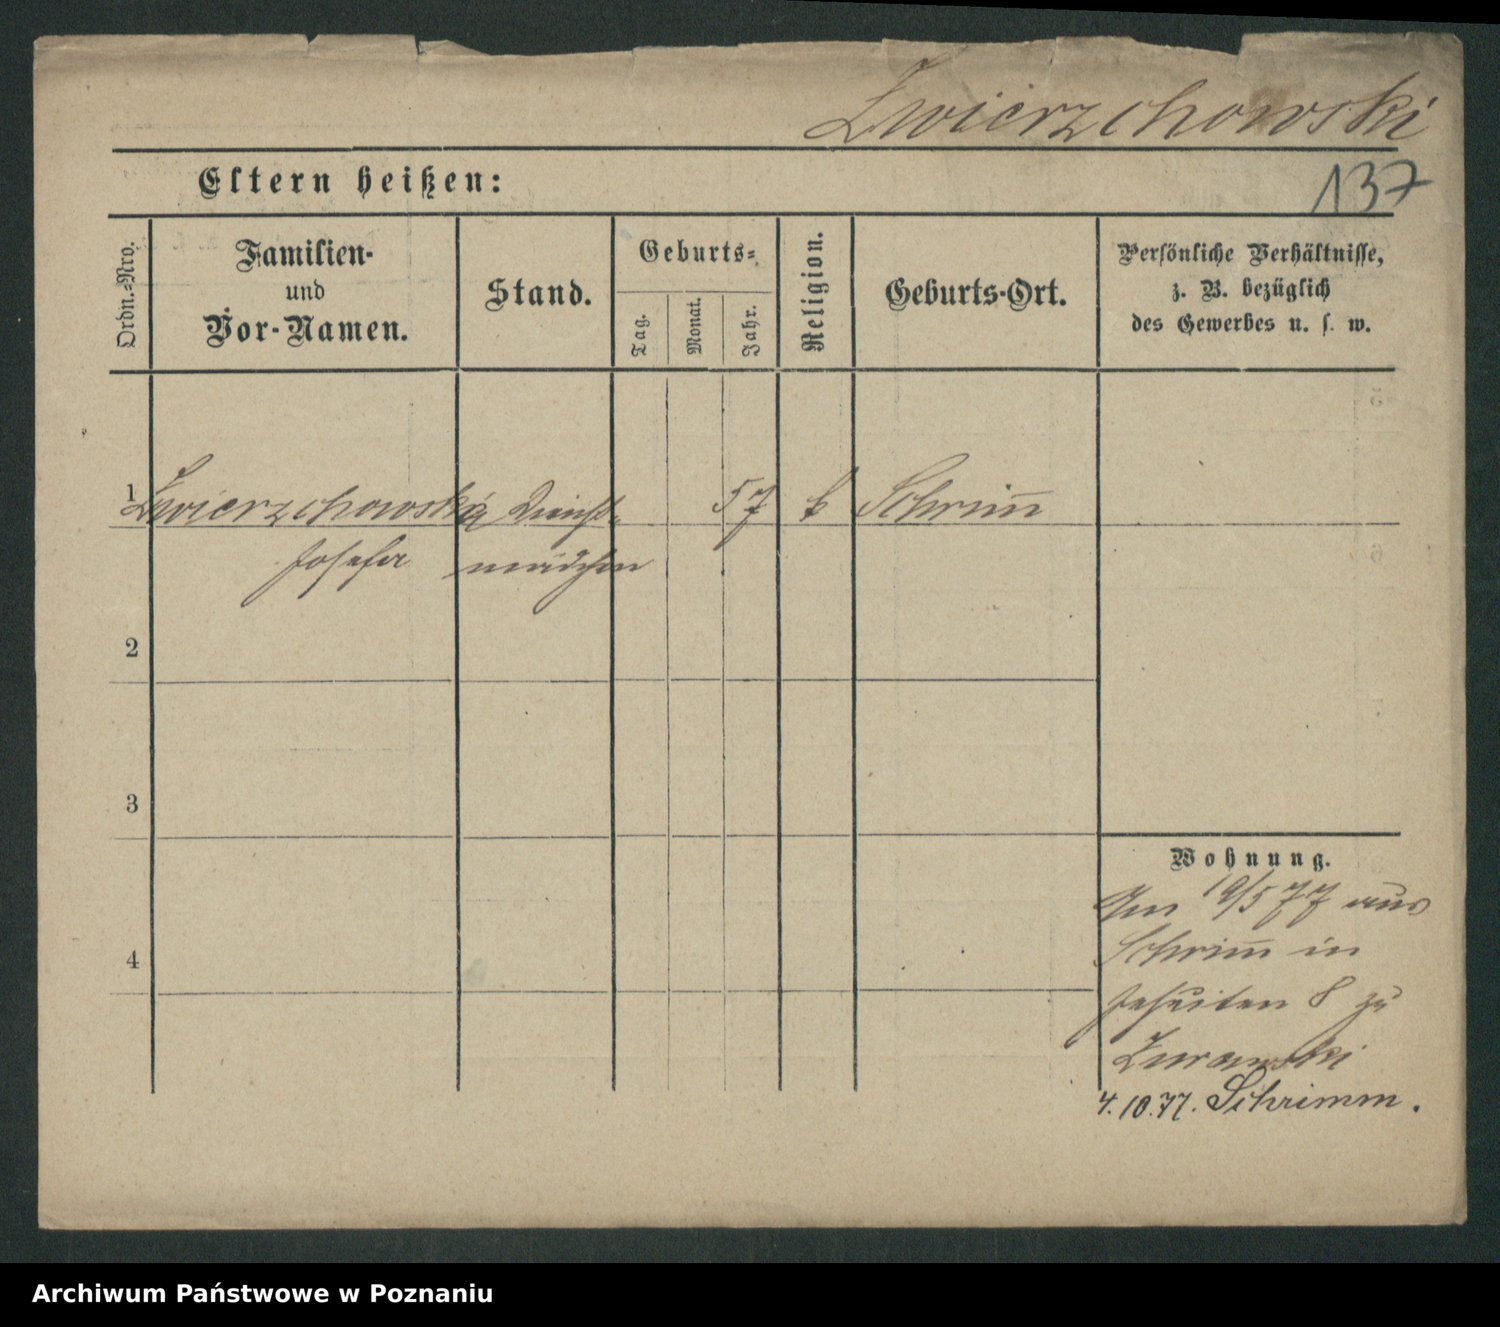 Zwierzchowski
137
Eltern heißen:
Ordn.-Nro.
Familien-
und
Vor-Namen.
Stand.
Geburts-
Tag.
Monat.
Jahr.
Religion.
Geburts-Ort.
Persönliche Verhältnisse,
z. B. bezüglich
des Gewerbes u. s. w.
1 Zwierzchowska Dienst- 57 k Schrim̅
Josefa mädchen
2
3
4
Wohnung.
Am 19/5 77 aus
Schrim̅ in
Jesuiten 8 zu
Zurawski
4.10.77. Schrimm.
Archiwum Państwowe w Poznaniu